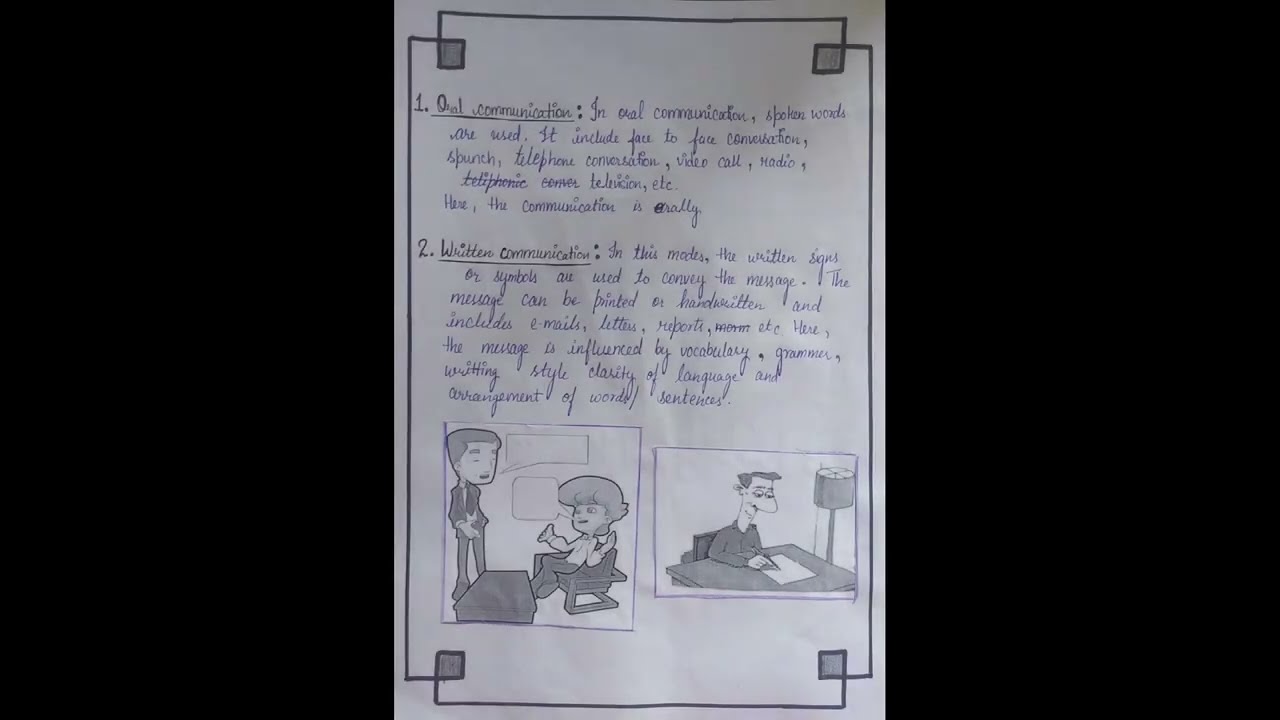 1. Oral communication: In oral communication, spoken words
are used. It include face to face conversation,
spunch, telephone conversation, video call, radio,
teliphonic conver television, etc.
Here, the communication is orally.
2. Written communication: In this modes, the written signs
or symbols are used to convey the message. The
message can be printed or handwritten and
includes e-mails, letters, reports, etc Here,
the message is influenced by vocabulary, grammer,
writting style clarity of language and
arrangement of words/ sentences.